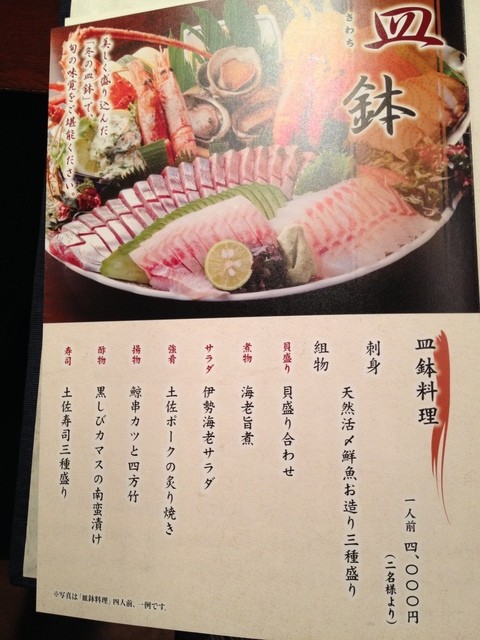 皿鉢
さわち
美しく盛り込んだ
「冬の皿鉢」で、
旬の味覚をご堪能ください。
皿鉢料理
一人前 四、〇〇〇円
(二名様より)
刺身
天然活〆鮮魚お造り三種盛り
組物
貝盛り 貝盛り合わせ
煮物 海老旨煮
サラダ 伊勢海老サラダ
強肴 土佐ポークの炙り焼き
揚物 鯨串カツと四方竹
酢物 黒しびカマスの南蛮漬け
寿司 土佐寿司三種盛り
※写真は「皿鉢料理」四人前、一例です。